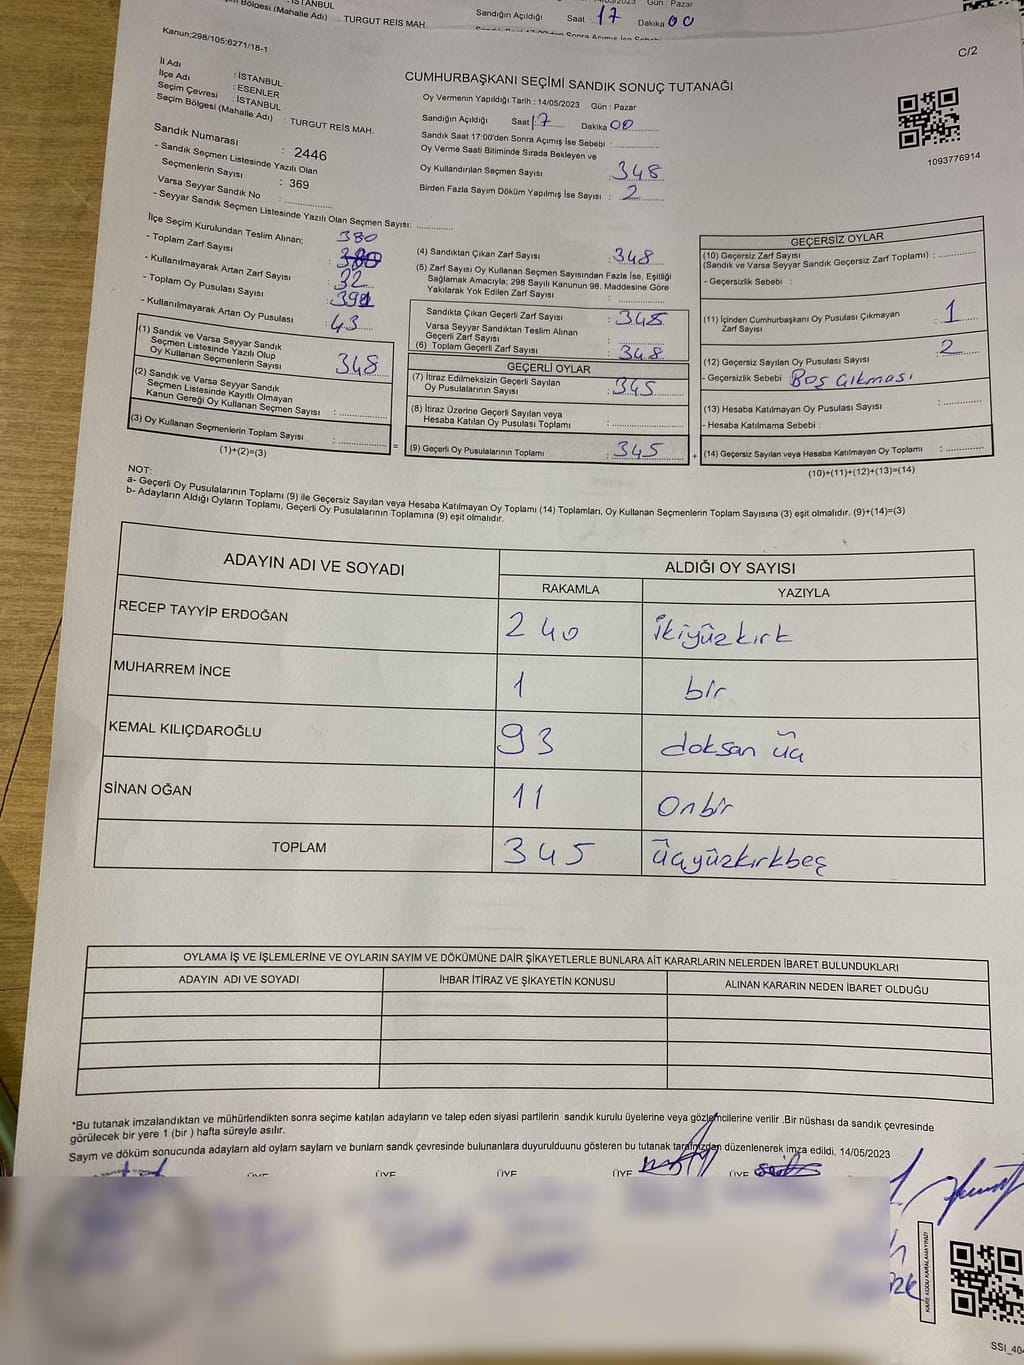 İSTANBUL
Bölgesi (Mahalle Adı) : TURGUT REİS MAH.
Gün : Pazar
Sandığın Açıldığı Saat 17 Dakika 00
Kanun;298/105;6271/18-1
C/2
CUMHURBAŞKANI SEÇİMİ SANDIK SONUÇ TUTANAĞI
İl Adı : İSTANBUL
İlçe Adı : ESENLER
Seçim Çevresi : İSTANBUL
Seçim Bölgesi (Mahalle Adı) : TURGUT REİS MAH.
Oy Vermenin Yapıldığı Tarih : 14/05/2023 Gün : Pazar
Sandığın Açıldığı Saat 17 Dakika 00
Sandık Saat 17:00'den Sonra Açımış İse Sebebi :
Oy Verme Saati Bitiminde Sırada Bekleyen ve
Oy Kullandırılan Seçmen Sayısı : 348
Birden Fazla Sayım Döküm Yapılmış İse Sayısı : 2
1093776914
Sandık Numarası : 2446
- Sandık Seçmen Listesinde Yazılı Olan
Seçmenlerin Sayısı : 369
Varsa Seyyar Sandık No :
- Seyyar Sandık Seçmen Listesinde Yazılı Olan Seçmen Sayısı:
İlçe Seçim Kurulundan Teslim Alınan;
- Toplam Zarf Sayısı 380
- Kullanılmayarak Artan Zarf Sayısı 32
- Toplam Oy Pusulası Sayısı
- Kullanılmayarak Artan Oy Pusulası : 43
(1) Sandık ve Varsa Seyyar Sandık
Seçmen Listesinde Yazılı Olup
Oy Kullanan Seçmenlerin Sayısı 348
(2) Sandık ve Varsa Seyyar Sandık
Seçmen Listesinde Kayıtlı Olmayan
Kanun Gereği Oy Kullanan Seçmen Sayısı :
(3) Oy Kullanan Seçmenlerin Toplam Sayısı :
(1)+(2)=(3)
=
(4) Sandıktan Çıkan Zarf Sayısı : 348
(5) Zarf Sayısı Oy Kullanan Seçmen Sayısından Fazla İse, Eşitliği
Sağlamak Amacıyla; 298 Sayılı Kanunun 98. Maddesine Göre
Yakılarak Yok Edilen Zarf Sayısı :
Sandıkta Çıkan Geçerli Zarf Sayısı : 348
Varsa Seyyar Sandıktan Teslim Alınan
Geçerli Zarf Sayısı :
(6) Toplam Geçerli Zarf Sayısı : 348
GEÇERLİ OYLAR
(7) İtiraz Edilmeksizin Geçerli Sayılan
Oy Pusulalarının Sayısı : 345
(8) İtiraz Üzerine Geçerli Sayılan veya
Hesaba Katılan Oy Pusulası Toplamı :
(9) Geçerli Oy Pusulalarının Toplamı : 345
+
GEÇERSİZ OYLAR
(10) Geçersiz Zarf Sayısı
(Sandık ve Varsa Seyyar Sandık Geçersiz Zarf Toplamı) :
- Geçersizlik Sebebi :
(11) İçinden Cumhurbaşkanı Oy Pusulası Çıkmayan
Zarf Sayısı : 1
(12) Geçersiz Sayılan Oy Pusulası Sayısı : 2
- Geçersizlik Sebebi Boş çıkması
(13) Hesaba Katılmayan Oy Pusulası Sayısı :
- Hesaba Katılmama Sebebi :
(14) Geçersiz Sayılan veya Hesaba Katılmayan Oy Toplamı :
(10)+(11)+(12)+(13)=(14)
NOT:
a- Geçerli Oy Pusulalarının Toplamı (9) ile Geçersiz Sayılan veya Hesaba Katılmayan Oy Toplamı (14) Toplamları, Oy Kullanan Seçmenlerin Toplam Sayısına (3) eşit olmalıdır. (9)+(14)=(3)
b- Adayların Aldığı Oyların Toplamı, Geçerli Oy Pusulalarının Toplamına (9) eşit olmalıdır.
ADAYIN ADI VE SOYADI ALDIĞI OY SAYISI
RAKAMLA YAZIYLA
RECEP TAYYİP ERDOĞAN 240 ikiyüzkırk
MUHARREM İNCE 1 bir
KEMAL KILIÇDAROĞLU 93 doksan üç
SİNAN OĞAN 11 Onbir
TOPLAM 345 üçyüzkırkbeş
OYLAMA İŞ VE İŞLEMLERİNE VE OYLARIN SAYIM VE DÖKÜMÜNE DAİR ŞİKAYETLERLE BUNLARA AİT KARARLARIN NELERDEN İBARET BULUNDUKLARI
ADAYIN ADI VE SOYADI İHBAR İTİRAZ VE ŞİKAYETİN KONUSU ALINAN KARARIN NEDEN İBARET OLDUĞU
*Bu tutanak imzalandıktan ve mühürlendikten sonra seçime katılan adayların ve talep eden siyasi partilerin sandık kurulu üyelerine veya gözlemcilerine verilir .Bir nüshası da sandık çevresinde
görülecek bir yere 1 (bir ) hafta süreyle asılır.
Saym ve döküm sonucunda adaylarn ald oylarn saylarn ve bunlarn sandk çevresinde bulunanlara duyurulduunu gösteren bu tutanak tarafmızdan düzenlenerek imza edildi. 14/05/2023
ÜYE ÜYE ÜYE ÜYE ÜYE
KARE KODU KARALAMAYINIZ!